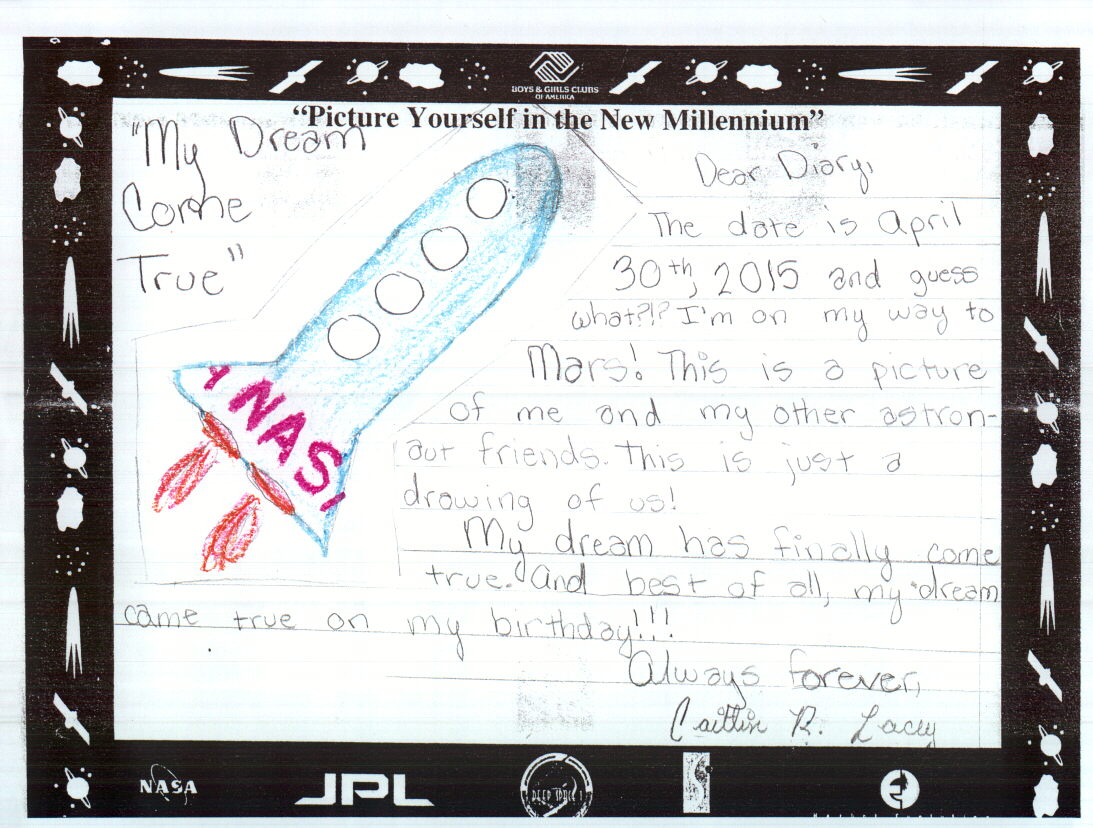 BOYS & GIRLS CLUBS
OF AMERICA
“Picture Yourself in the New Millennium”
"My Dream
Come
True"
Dear Diary,
The date is April
30th, 2015 and guess
what?!? I'm on my way to
Mars! This is a picture
of me and my other astron-
aut friends. This is just a
drawing of us!
My dream has finally come
true. And best of all, my dream
came true on my birthday!!!
Always forever,
Caitlin R. Lacey
NAS
NASA
JPL
DEEP SPACE 1